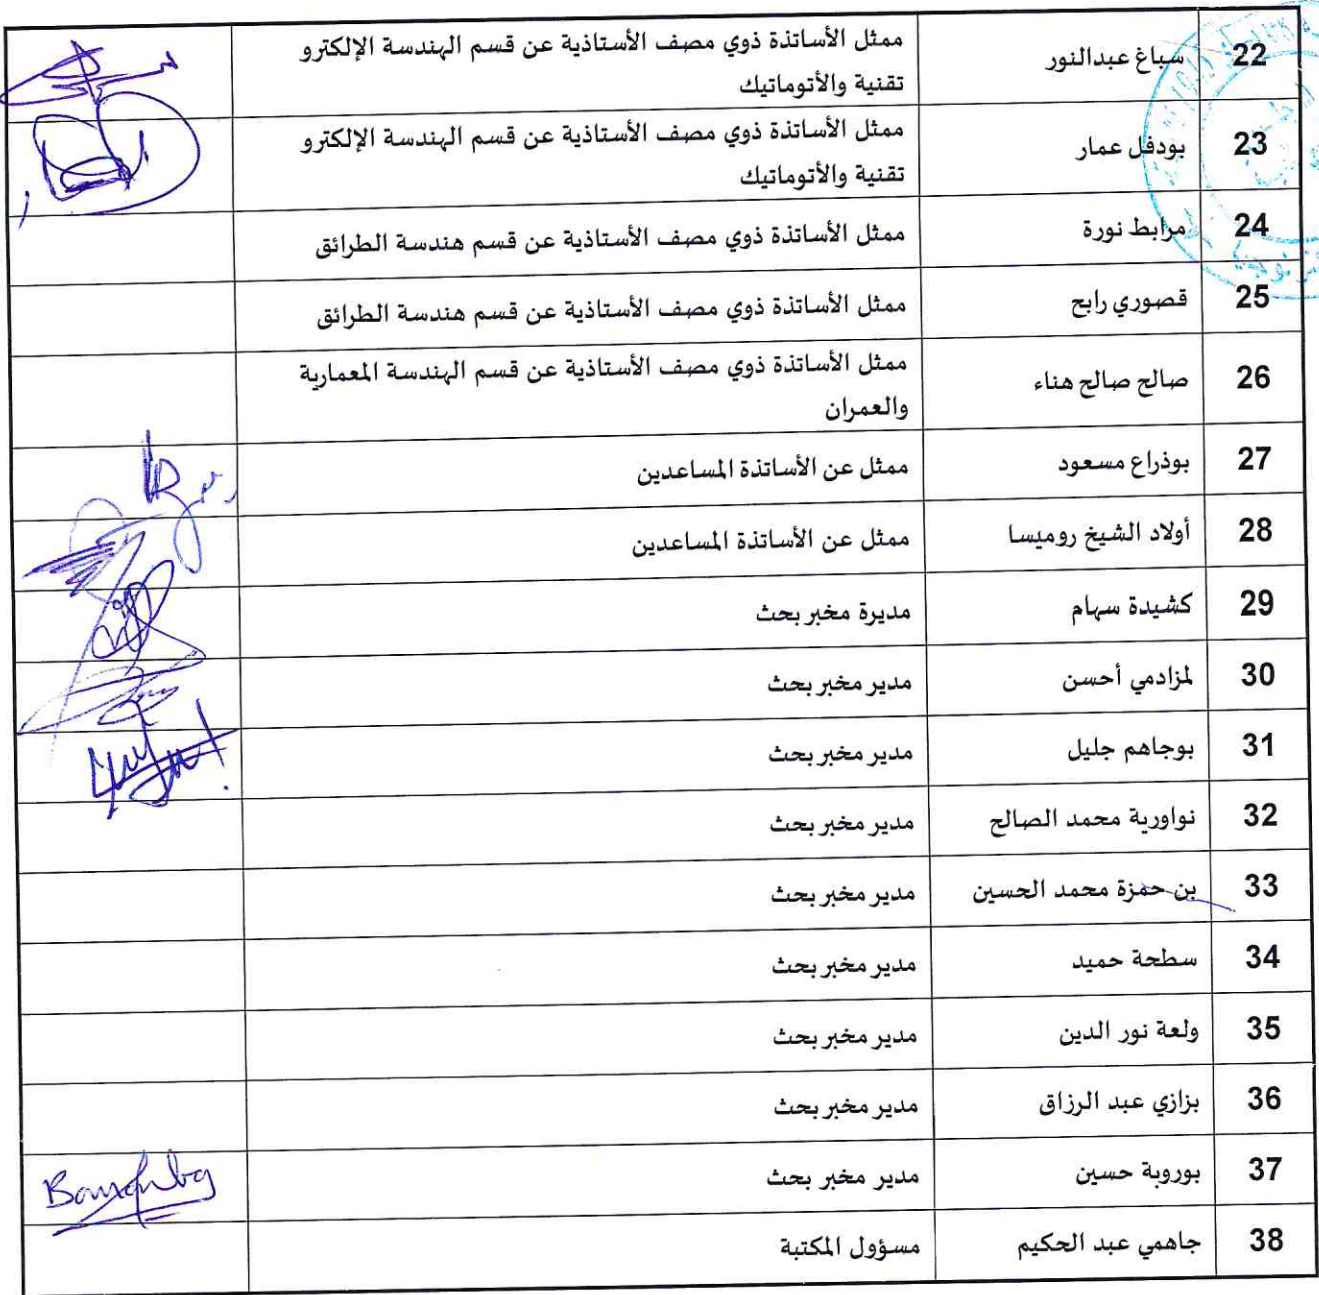 22 سباغ عبدالنور ممثل الأساتذة ذوي مصف الأستاذية عن قسم الهندسة الإلكترو
تقنية والأتوماتيك
23 بودفل عمار ممثل الأساتذة ذوي مصف الأستاذية عن قسم الهندسة الإلكترو
تقنية والأتوماتيك
24 مرابط نورة ممثل الأساتذة ذوي مصف الأستاذية عن قسم هندسة الطرائق
25 قصوري رابح ممثل الأساتذة ذوي مصف الأستاذية عن قسم هندسة الطرائق
26 صالح صالح هناء ممثل الأساتذة ذوي مصف الأستاذية عن قسم الهندسة المعمارية
والعمران
27 بوذراع مسعود ممثل عن الأساتذة المساعدين
28 أولاد الشيخ روميسا ممثل عن الأساتذة المساعدين
29 كشيدة سهام مديرة مخبر بحث
30 لمزادمي أحسن مدير مخبر بحث
31 بوجاهم جليل مدير مخبر بحث
32 نواورية محمد الصالح مدير مخبر بحث
33 بن حمزة محمد الحسين مدير مخبر بحث
34 سطحة حميد مدير مخبر بحث
35 ولعة نور الدين مدير مخبر بحث
36 بزازي عبد الرزاق مدير مخبر بحث
37 بوروبة حسين مدير مخبر بحث
38 جاهمي عبد الحكيم مسؤول المكتبة